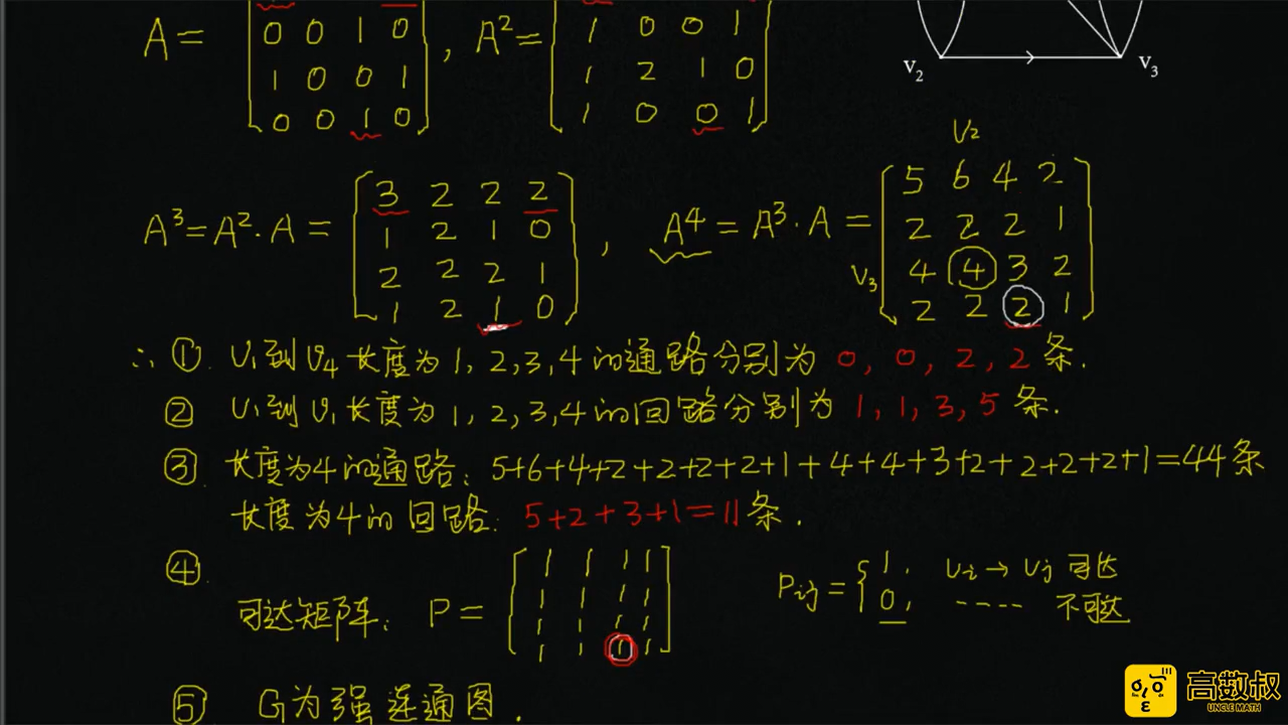 A = [0 0 1 0; 1 0 0 1; 0 0 1 0], A² = [1 0 0 1; 1 2 1 0; 1 0 0 1]
v₂ v₃
A³ = A²·A = [3 2 2 2; 1 2 1 0; 2 2 2 1; 1 2 1 0], A⁴ = A³·A = [5 6 4 2; 2 2 2 1; 4 4 3 2; 2 2 2 1]
v₂
v₃
∴ ① v₁到v₄长度为1,2,3,4的通路分别为 0, 0, 2, 2 条.
② v₁到v₁长度为1,2,3,4的回路分别为 1, 1, 3, 5 条.
③ 长度为4的通路: 5+6+4+2+2+2+2+1+4+4+3+2+2+2+2+1=44条
长度为4的回路: 5+2+3+1=11条.
④
可达矩阵: P = [1 1 1 1; 1 1 1 1; 1 1 1 1; 1 1 1 1]
Pij = { 1, vi → vj 可达
0, ---- 不可达
⑤ G为强连通图.
高数叔
UNCLE MATH